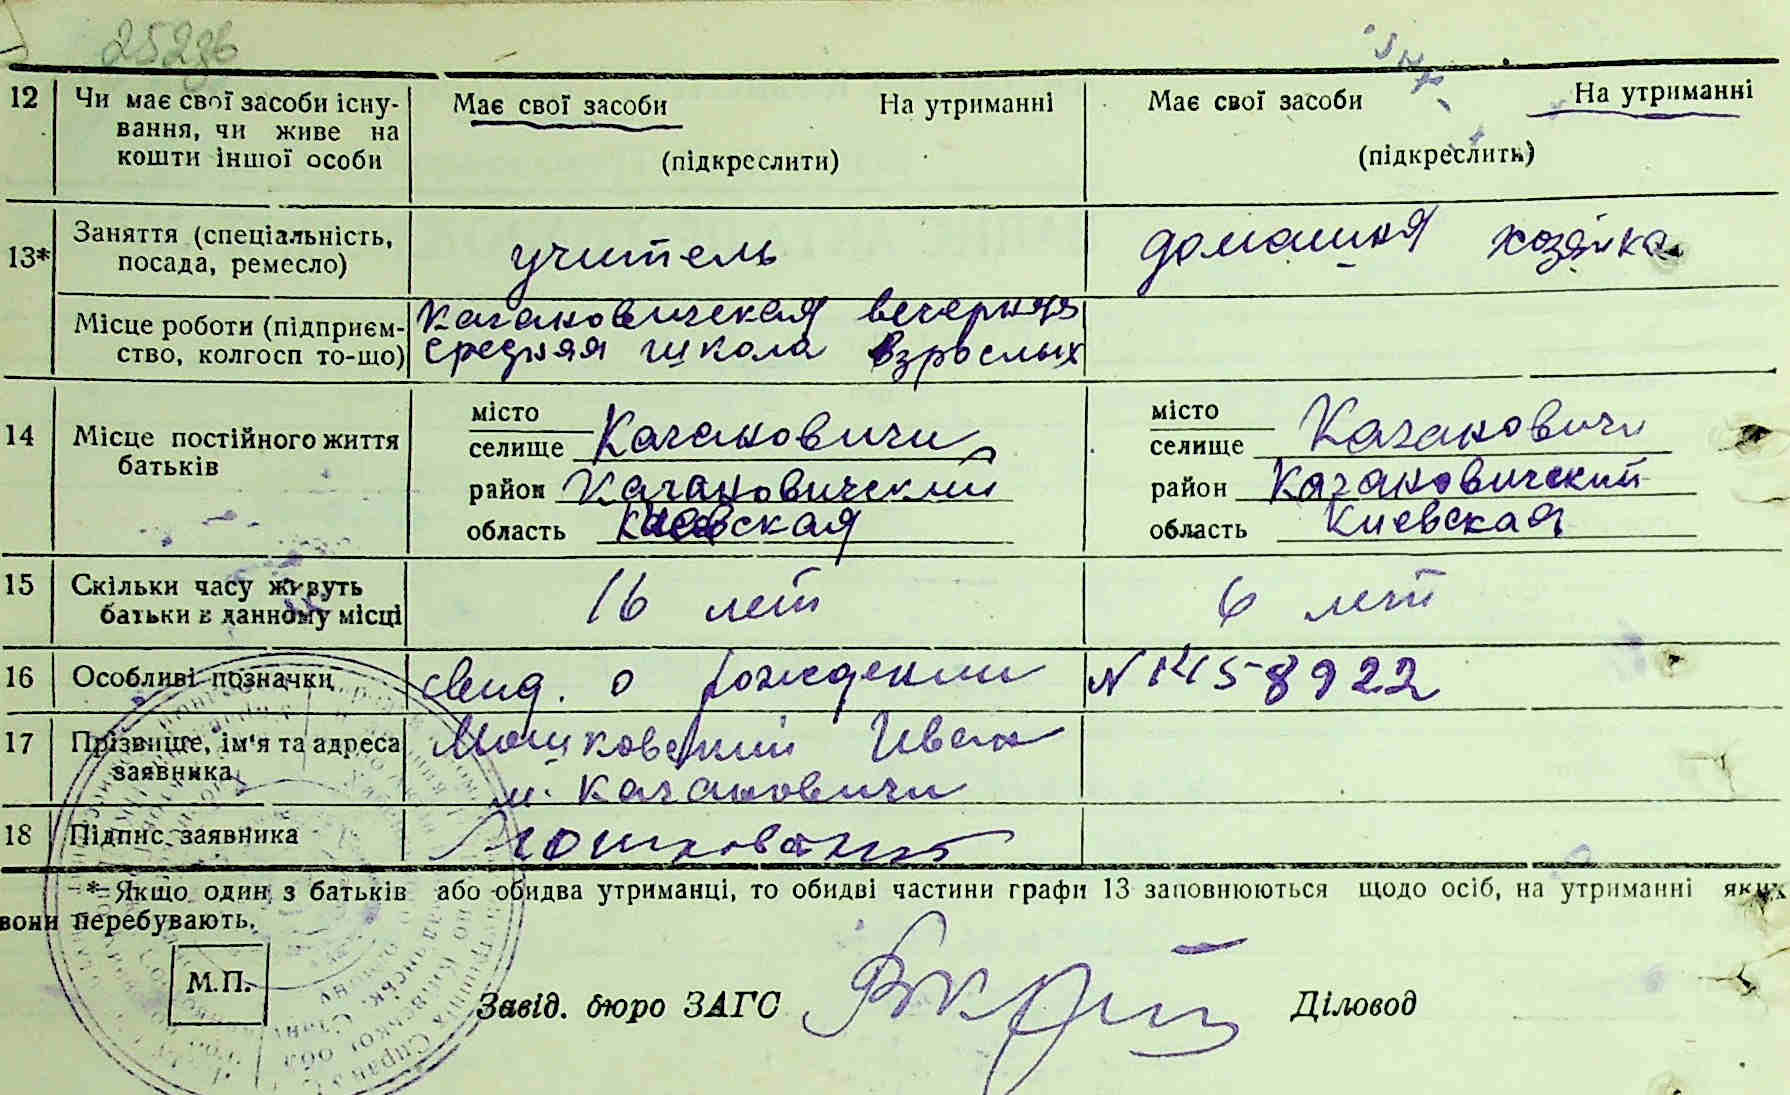 252зв
12 Чи має свої засоби існу- Має свої засоби На утриманні Має свої засоби На утриманні
вання, чи живе на
кошти іншої особи (підкреслити) (підкреслить)
13* Заняття (спеціальність, учитель домашняя хозяйка
посада, ремесло)
Місце роботи (підприєм- Кагановическая вечерняя
ство, колгосп то-що) средняя школа взрослых
14 Місце постійного життя місто місто
батьків селище Кагановичи селище Кагановичи
район Кагановический район Кагановический
область Киевская область Киевская
15 Скільки часу живуть 16 лет 6 лет
батьки в данному місці
16 Особливі позначки свид. о рождении № 1458922
17 Прізвище, ім'я та адреса Мошковский Иван
заявника м. Кагановичи
18 Підпис заявника
*Якщо один з батьків або обидва утриманці, то обидві частини графи 13 заповнюються щодо осіб, на утриманні яких
вони перебувають.
М.П.
Завід. бюро ЗАГС Діловод